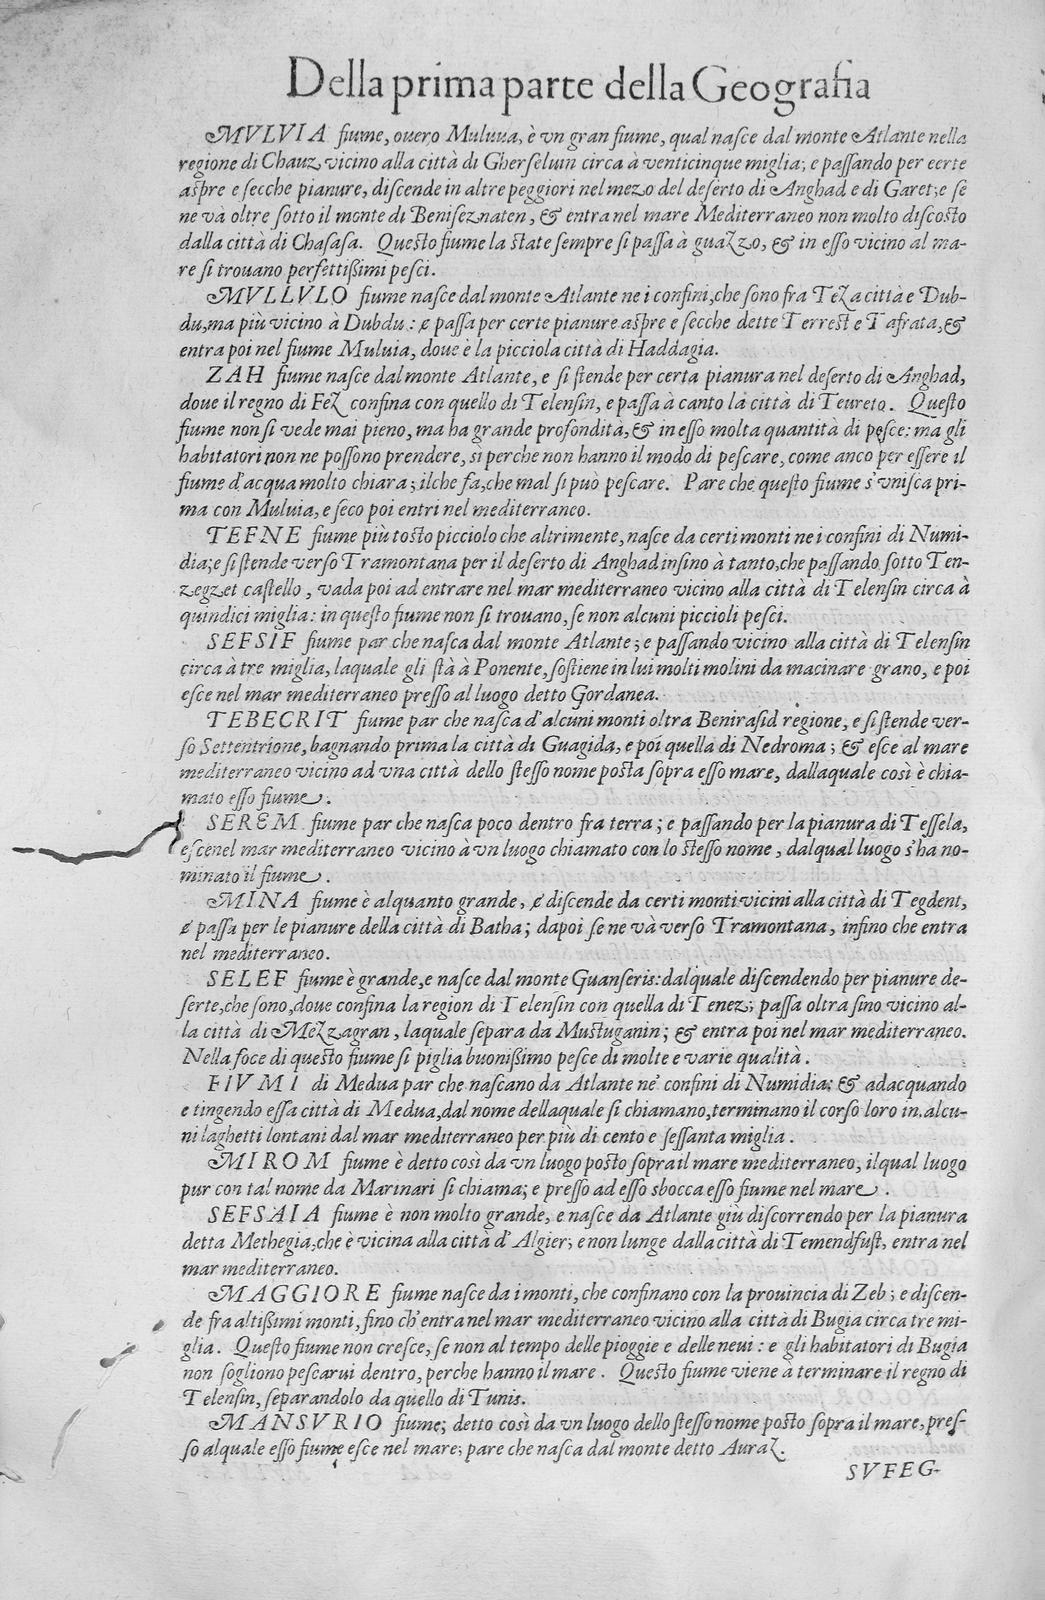 Della prima parte della Geografia
MVLVIA fiume, ouero Muluua, è vn gran fiume, qual nasce dal monte Atlante nella
regione di Chauz vicino alla città di Gherseluin circa à venticinque miglia; e passando per certe
aspre e secche pianure, discende in altre peggiori nel mezo del deserto di Anghad e di Garet; e se
ne và oltre sotto il monte di Beniseznaten, & entra nel mare Mediterraneo non molto discosto
dalla città di Chasasa. Questo fiume la state sempre si passa à guazzo, & in esso vicino al ma-
re si trouano perfettissimi pesci.
MVLLVLO fiume nasce dal monte Atlante ne i confini, che sono fra Teza città e Dub-
du, ma più vicino à Dubdu: e passa per certe pianure aspre e secche dette Terrest e Tafrata, &
entra poi nel fiume Muluia, doue è la picciola città di Haddagia.
ZAH fiume nasce dal monte Atlante, e si stende per certa pianura nel deserto di Anghad,
doue il regno di Fez confina con quello di Telensin, e passa à canto la città di Teureto. Questo
fiume non si vede mai pieno, ma ha grande profondità, & in esso molta quantità di pesce: ma gli
habitatori non ne possono prendere, sì perche non hanno il modo di pescare, come anco per essere il
fiume d'acqua molto chiara; ilche fa, che mal si può pescare. Pare che questo fiume s'vnisca pri-
ma con Muluia, e seco poi entri nel mediterraneo.
TEFNE fiume più tosto picciolo che altrimente, nasce da certi monti ne i confini di Numi-
dia; e si stende verso Tramontana per il deserto di Anghad insino à tanto, che passando sotto Ten-
zegzet castello, vada poi ad entrare nel mar mediterraneo vicino alla città di Telensin circa à
quindici miglia: in questo fiume non si trouano, se non alcuni piccioli pesci.
SEFSIF fiume par che nasca dal monte Atlante; e passando vicino alla città di Telensin
circa à tre miglia, laquale gli stà à Ponente, sostiene in lui molti molini da macinare grano, e poi
esce nel mar mediterraneo presso al luogo detto Gordanea.
TEBECRIT fiume par che nasca d'alcuni monti oltra Benirasid regione, e si stende ver-
so Settentrione, bagnando prima la città di Guagida, e poi quella di Nedroma; & esce al mare
mediterraneo vicino ad vna città dello stesso nome posta sopra esso mare, dallaquale così è chia-
mato esso fiume.
SEREM fiume par che nasca poco dentro fra terra; e passando per la pianura di Tessela,
esce nel mar mediterraneo vicino à vn luogo chiamato con lo stesso nome, dalqual luogo s'ha no-
minato il fiume.
MINA fiume è alquanto grande, e discende da certi monti vicini alla città di Tegdent,
e passa per le pianure della città di Batha; dapoi se ne và verso Tramontana, infino che entra
nel mediterraneo.
SELEF fiume è grande, e nasce dal monte Guanseris: dalquale discendendo per pianure de-
serte, che sono, doue confina la region di Telensin con quella di Tenez; passa oltra sino vicino al-
la città di Mezzagran, laquale separa da Mustuganin; & entra poi nel mar mediterraneo.
Nella foce di questo fiume si piglia buonissimo pesce di molte e varie qualità.
FIVMI di Medua par che nascano da Atlante ne' confini di Numidia: & adacquando
e tingendo essa città di Medua, dal nome dellaquale si chiamano, terminano il corso loro in alcu-
ni laghetti lontani dal mar mediterraneo per più di cento e sessanta miglia.
MIROM fiume è detto così da vn luogo posto sopra il mare mediterraneo, ilqual luogo
pur con tal nome da Marinari si chiama; e presso ad esso sbocca esso fiume nel mare.
SEFSAIA fiume è non molto grande, e nasce da Atlante giù discorrendo per la pianura
detta Methegia, che è vicina alla città d'Algier; e non lunge dalla città di Temendfust, entra nel
mar mediterraneo.
MAGGIORE fiume nasce da i monti, che confinano con la prouincia di Zeb; e discen-
de fra altissimi monti, fino ch'entra nel mar mediterraneo vicino alla città di Bugia circa tre mi-
glia. Questo fiume non cresce, se non al tempo delle pioggie e delle neui: e gli habitatori di Bugia
non sogliono pescarui dentro, perche hanno il mare. Questo fiume viene à terminare il regno di
Telensin, separandolo da quello di Tunis.
MANSVRIO fiume, detto così da vn luogo dello stesso nome posto sopra il mare, pres-
so alquale esso fiume esce nel mare; pare che nasca dal monte detto Auraz.
SVFEG-